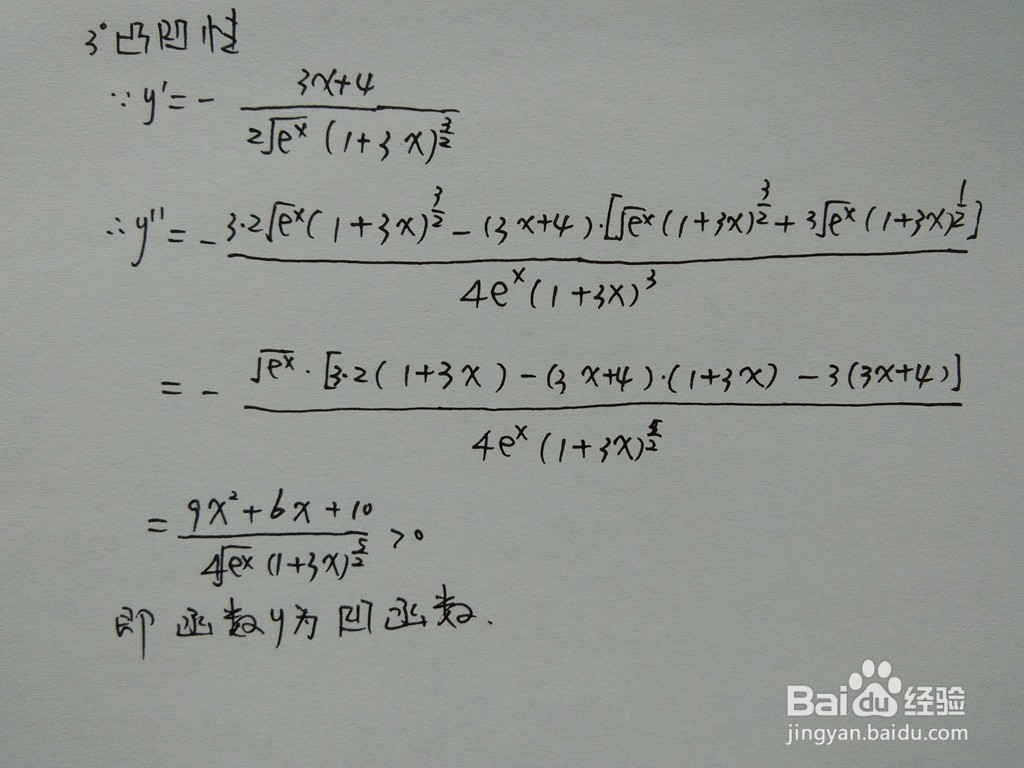 3° 凸凹性
∵ y' = - (3x+4) / (2√(e^x) (1+3x)^(3/2))
∴ y'' = - (3·2√(e^x) (1+3x)^(3/2) - (3x+4)·[√(e^x) (1+3x)^(3/2) + 3√(e^x) (1+3x)^(1/2)]) / (4e^x (1+3x)^3)
= - (√(e^x)·[3·2(1+3x) - (3x+4)·(1+3x) - 3(3x+4)]) / (4e^x (1+3x)^(5/2))
= (9x²+6x+10) / (4√(e^x) (1+3x)^(5/2)) >0
即函数y为凹函数.
Baidu经验
jingyan.baidu.com